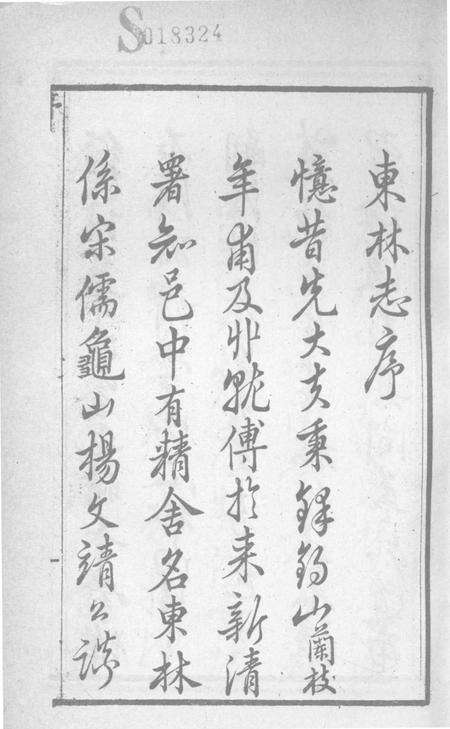 S2018324
東林志序
憶昔先大夫秉鐸錫山蘭枝
年甫及丱就傅於来新清
署知邑中有精舍名東林
係宋儒龜山楊文靖公講